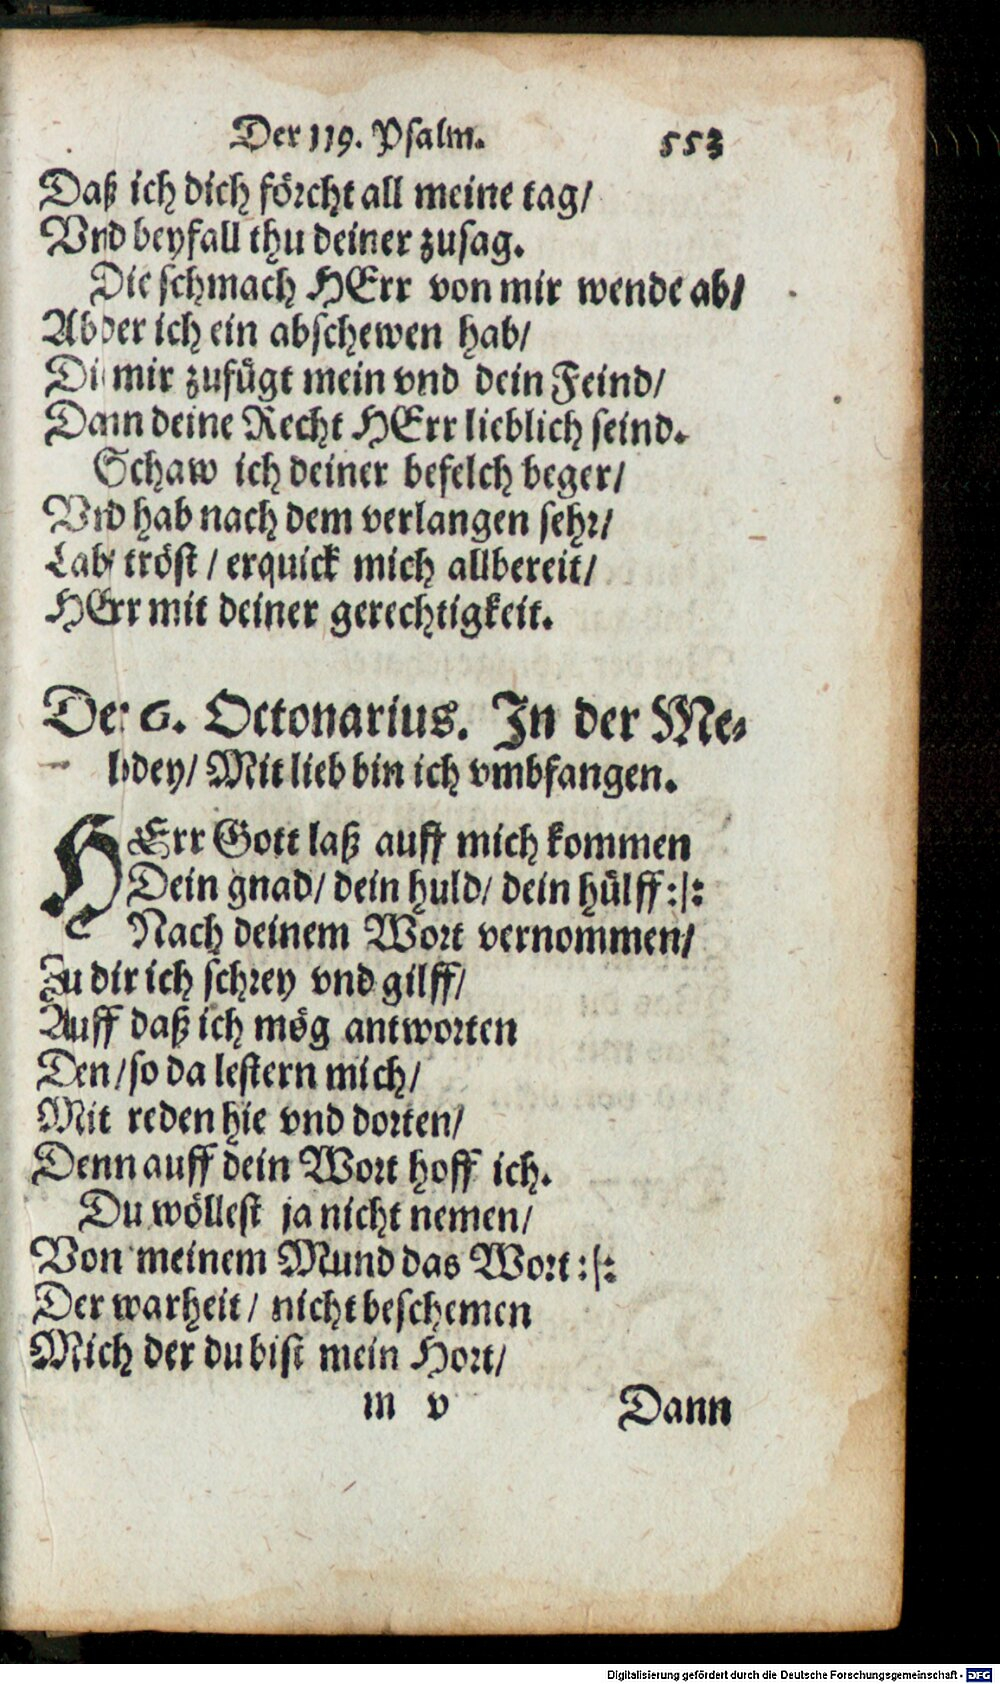 Der 119. Psalm. 553
Daß ich dich förcht all meine tag/
Vnd beyfall thu deiner zusag.
Die schmach HErr von mir wende ab/
Ab der ich ein abschewen hab/
Di mir zufügt mein vnd dein Feind/
Dann deine Recht HErr lieblich seind.
Schaw ich deiner befelch beger/
Vnd hab nach dem verlangen sehr/
Lab/ tröst / erquick mich allbereit/
HErr mit deiner gerechtigkeit.
Der 6. Octonarius. In der Me-
lodey/ Mit lieb bin ich vmbfangen.
HErr Gott laß auff mich kommen
Dein gnad/ dein huld/ dein hülff :|:
Nach deinem Wort vernommen/
Zu dir ich schrey vnd gilff/
Auff daß ich mög antworten
Den/ so da lestern mich/
Mit reden hie vnd dorten/
Denn auff dein Wort hoff ich.
Du wöllest ja nicht nemen/
Von meinem Mund das Wort :|:
Der warheit/ nicht beschemen
Mich der du bist mein Hort/
m v Dann
Digitalisierung gefördert durch die Deutsche Forschungsgemeinschaft - DFG